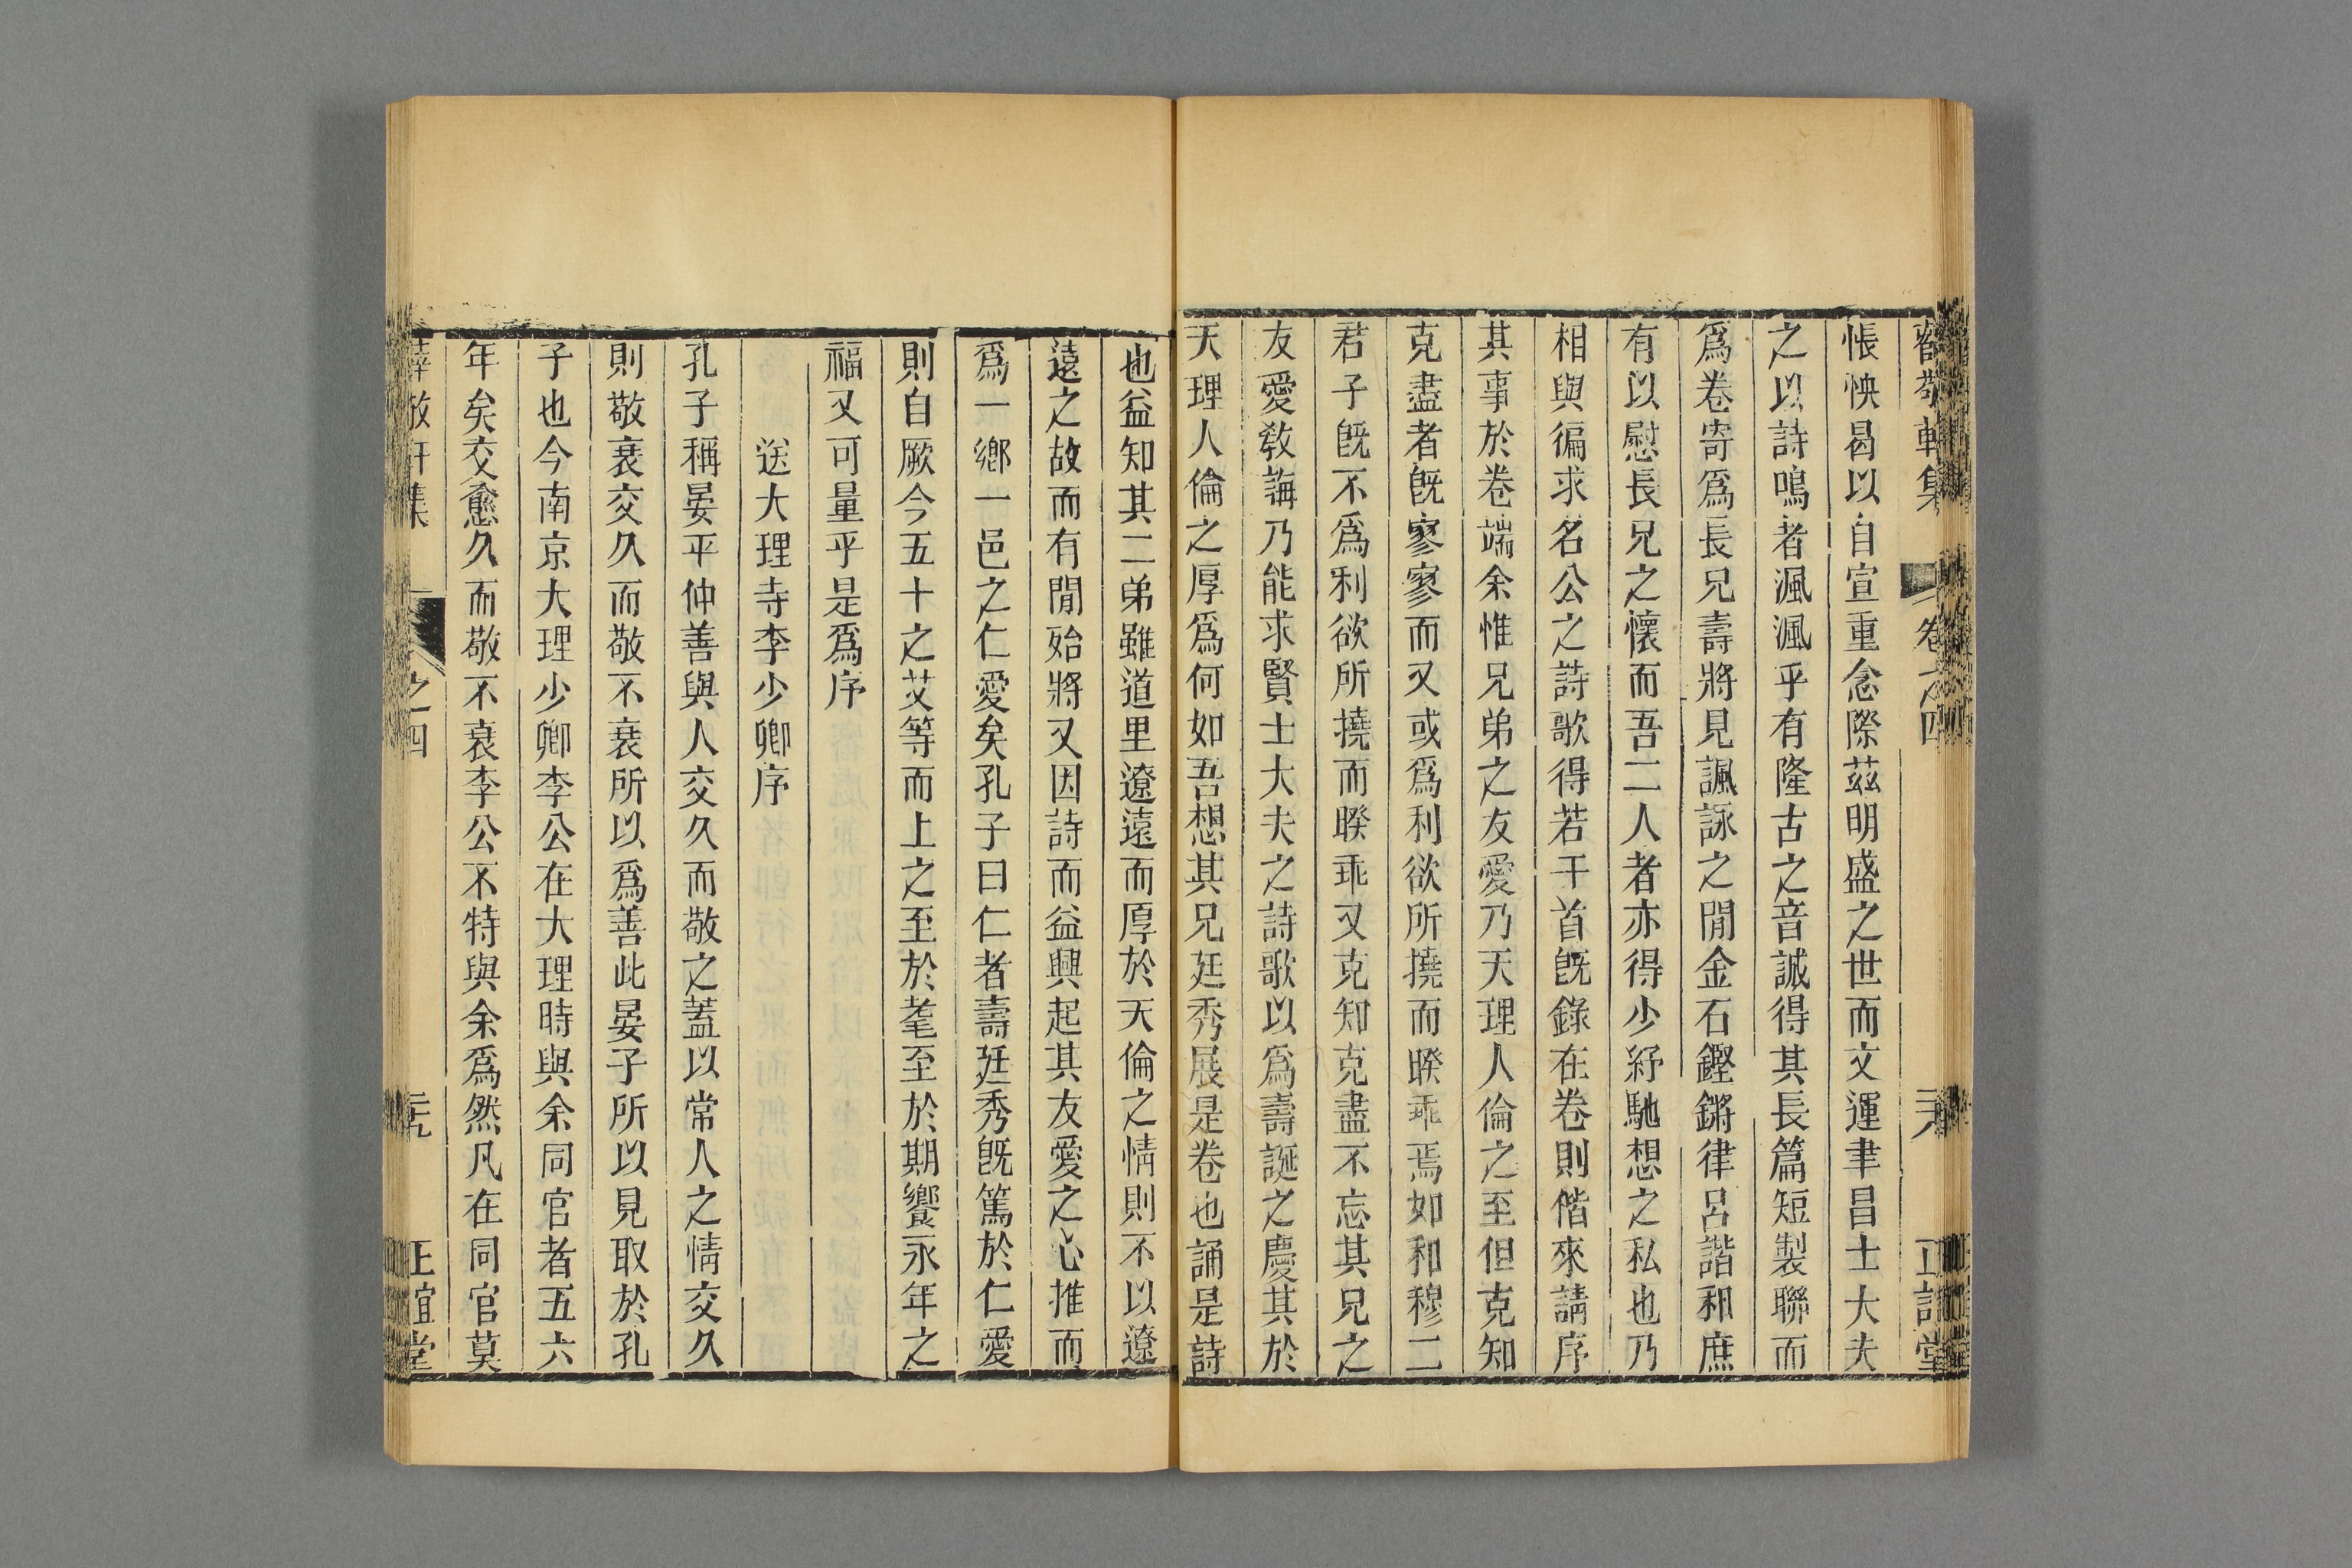 薛敬軒集 卷之四 正誼堂
悵怏曷以自宣重念際茲明盛之世而文運聿昌士大夫
之以詩鳴者渢渢乎有隆古之音誠得其長篇短製聯而
爲卷寄爲長兄壽將見諷詠之閒金石鏗鏘律呂諧和庶
有以慰長兄之懷而吾二人者亦得少紓馳想之私也乃
相與徧求名公之詩歌得若干首旣錄在卷則偕來請序
其事於卷端余惟兄弟之友愛乃天理人倫之至但克知
克盡者旣寥寥而又或爲利欲所撓而睽乖焉如和穆二
君子旣不爲利欲所撓而睽乖又克知克盡不忘其兄之
友愛敎誨乃能求賢士大夫之詩歌以爲壽誕之慶其於
天理人倫之厚爲何如吾想其兄廷秀展是卷也誦是詩
也益知其二弟雖道里遼遠而厚於天倫之情則不以遼
遠之故而有閒殆將又因詩而益興起其友愛之心推而
爲一鄉一邑之仁愛矣孔子曰仁者壽廷秀旣篤於仁愛
則自厥今五十之艾等而上之至於耄至於期饗永年之
福又可量乎是爲序
送大理寺李少卿序
孔子稱晏平仲善與人交久而敬之蓋以常人之情交久
則敬衰交久而敬不衰所以爲善此晏子所以見取於孔
子也今南京大理少卿李公在大理時與余同官者五六
年矣交愈久而敬不衰李公不特與余爲然凡在同官莫
薛敬軒集 之四 正誼堂